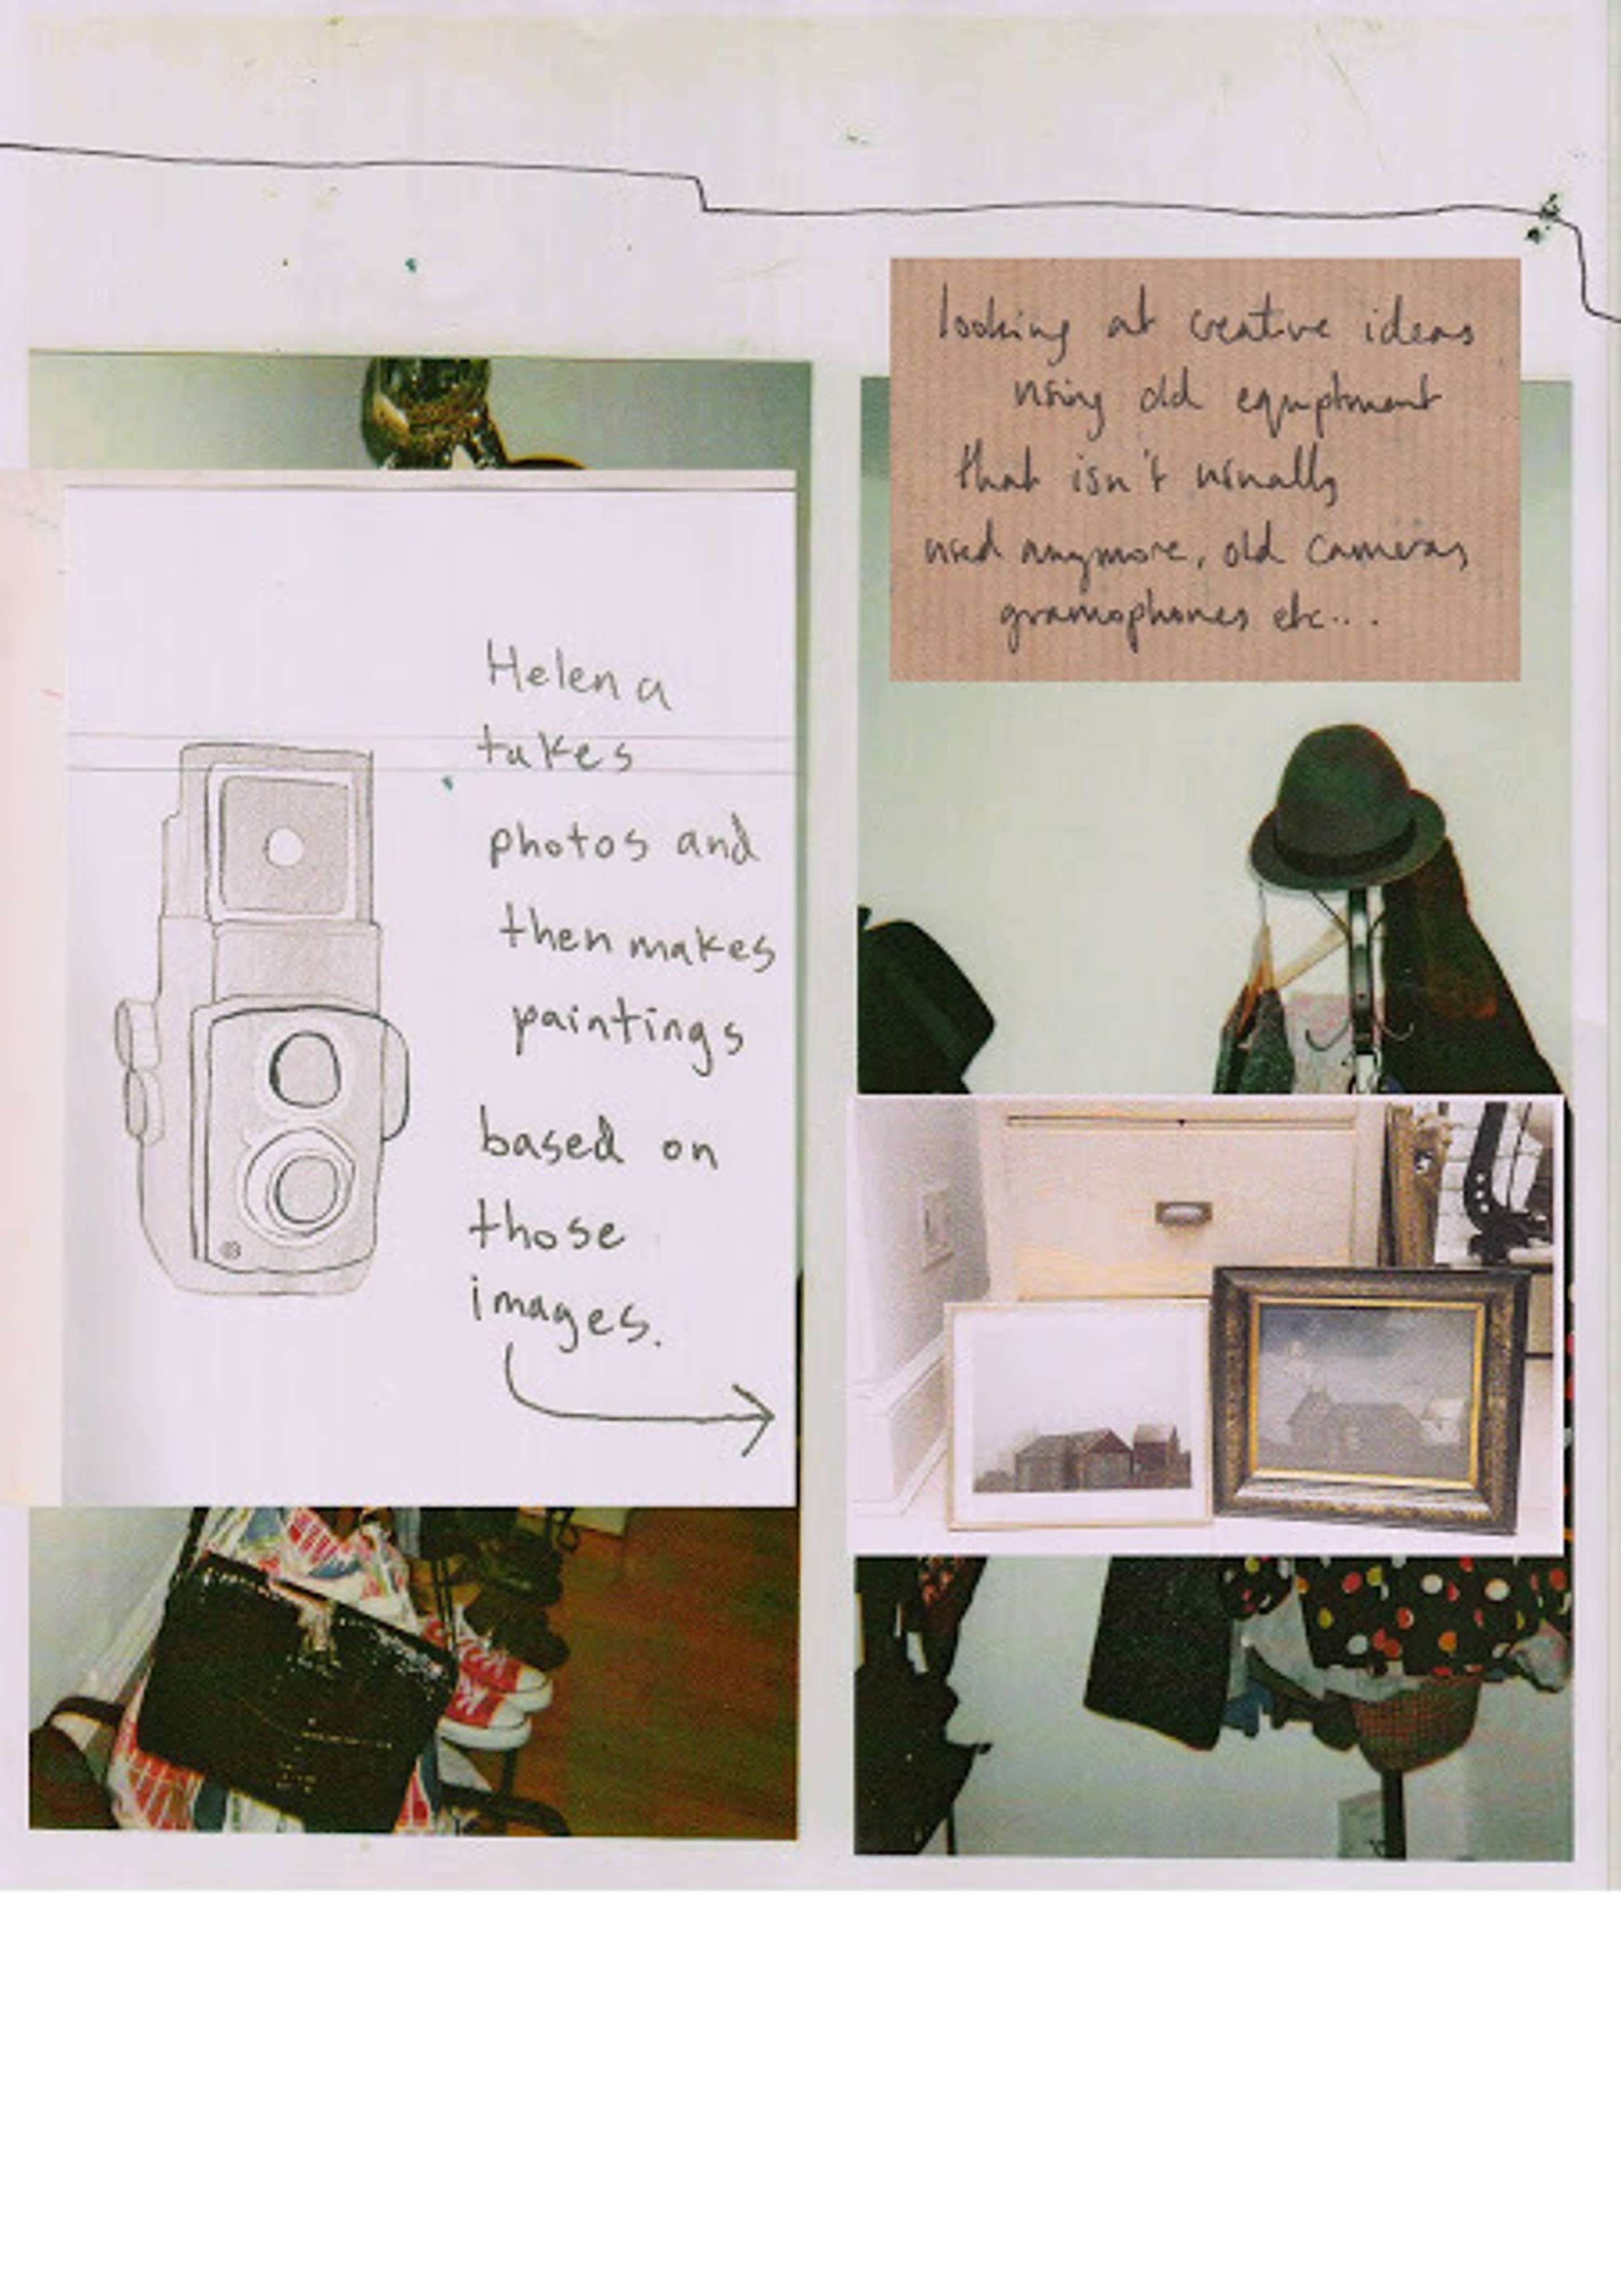 looking at creative ideas
using old equptment
that isn't usually
used anymore, old cameras
gramophones etc...
Helena
takes
photos and
then makes
paintings
based on
those
images.